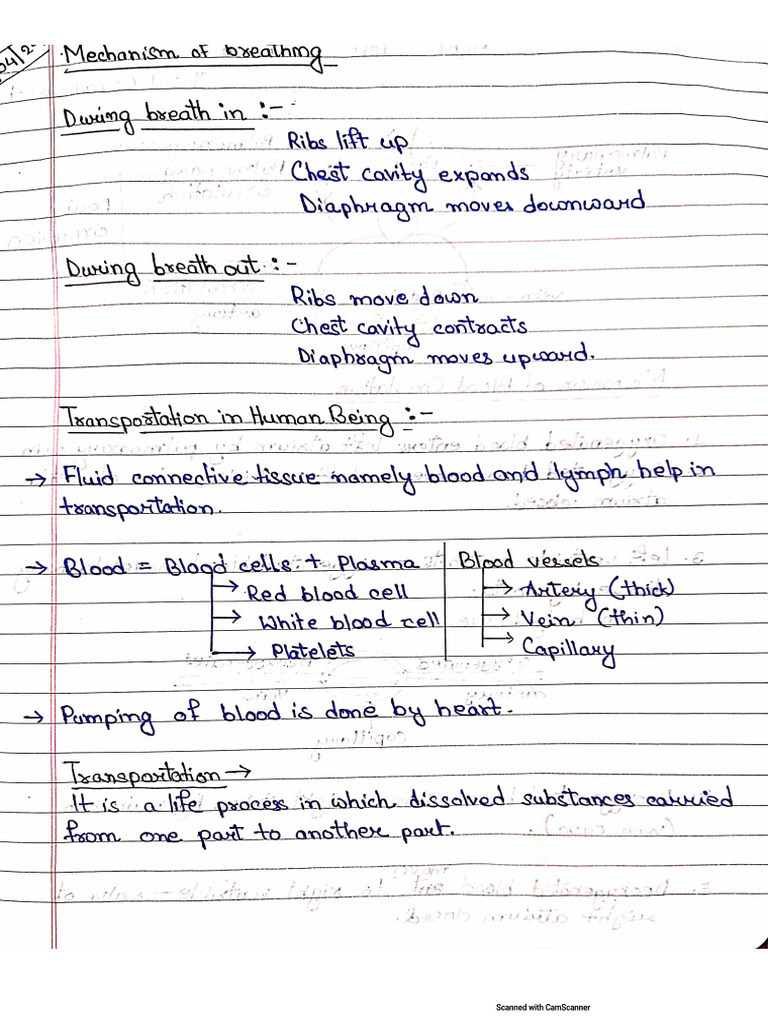 Mechanism of breathing
During breath in :-
Ribs lift up
Chest cavity expands
Diaphragm moves downward
During breath out :-
Ribs move down
Chest cavity contracts
Diaphragm moves upward.
Transportation in Human Being :-
→ Fluid connective tissue namely blood and lymph help in
transportation.
→ Blood = Blood cells + Plasma | Blood vessels
→ Red blood cell → Artery (thick)
→ White blood cell → Vein (thin)
→ Platelets → Capillary
→ Pumping of blood is done by heart.
Transportation →
It is a life process in which dissolved substances carried
from one part to another part.
Scanned with CamScanner